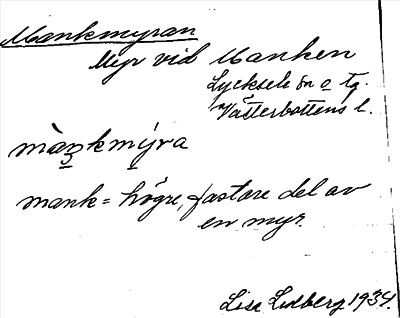 Mankmyran
Myr vid Manken
Lycksele sn o tg.
Västerbottens l.
màn̥kmýra
mank = högre, fastare del av
en myr.
Lisa Lidberg 1934.